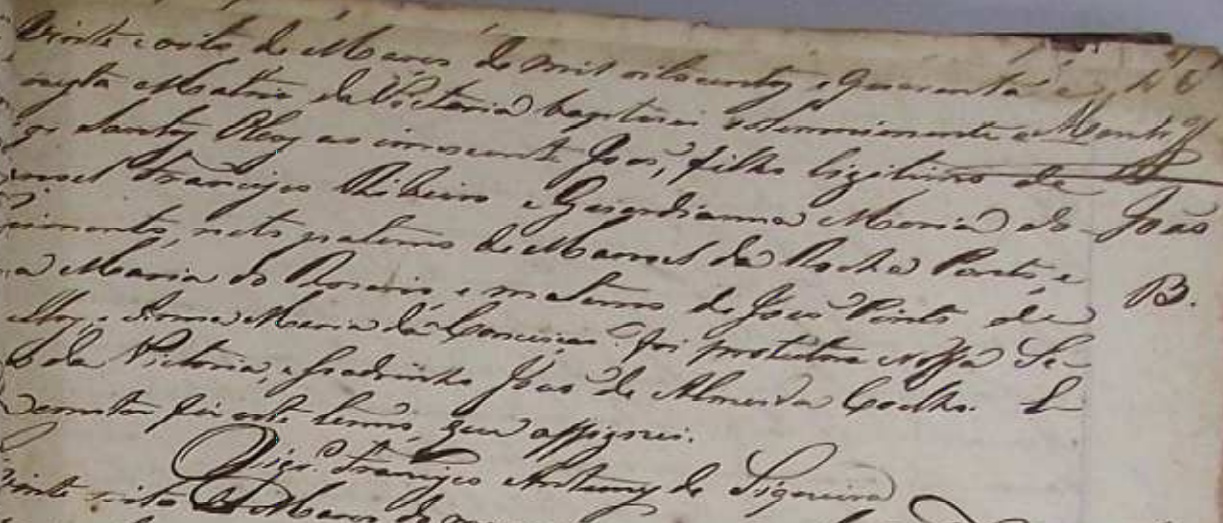 Vinte e oito de Março de mil oitocentos e quarenta e
nesta Matriz da Victoria baptisei solennemente e
Santos Oleos ao innocente João, filho legitimo de
Francisco Ribeiro e Guardianna Maria do
cimento, neto paterno de Manoel da Rocha Porto, e
a Maria do Rosario, e materno de José Pinto de
e Anna Maria da Conceiçaõ foi protetora Nossa Se-
a da Victoria, e Padrinho Joaõ de Almeida Coelho. E
constar fiz este termo, que assignei.
Vigº Francisco Antunes de Siqueira
Vinte e oito de Março de
João
B.